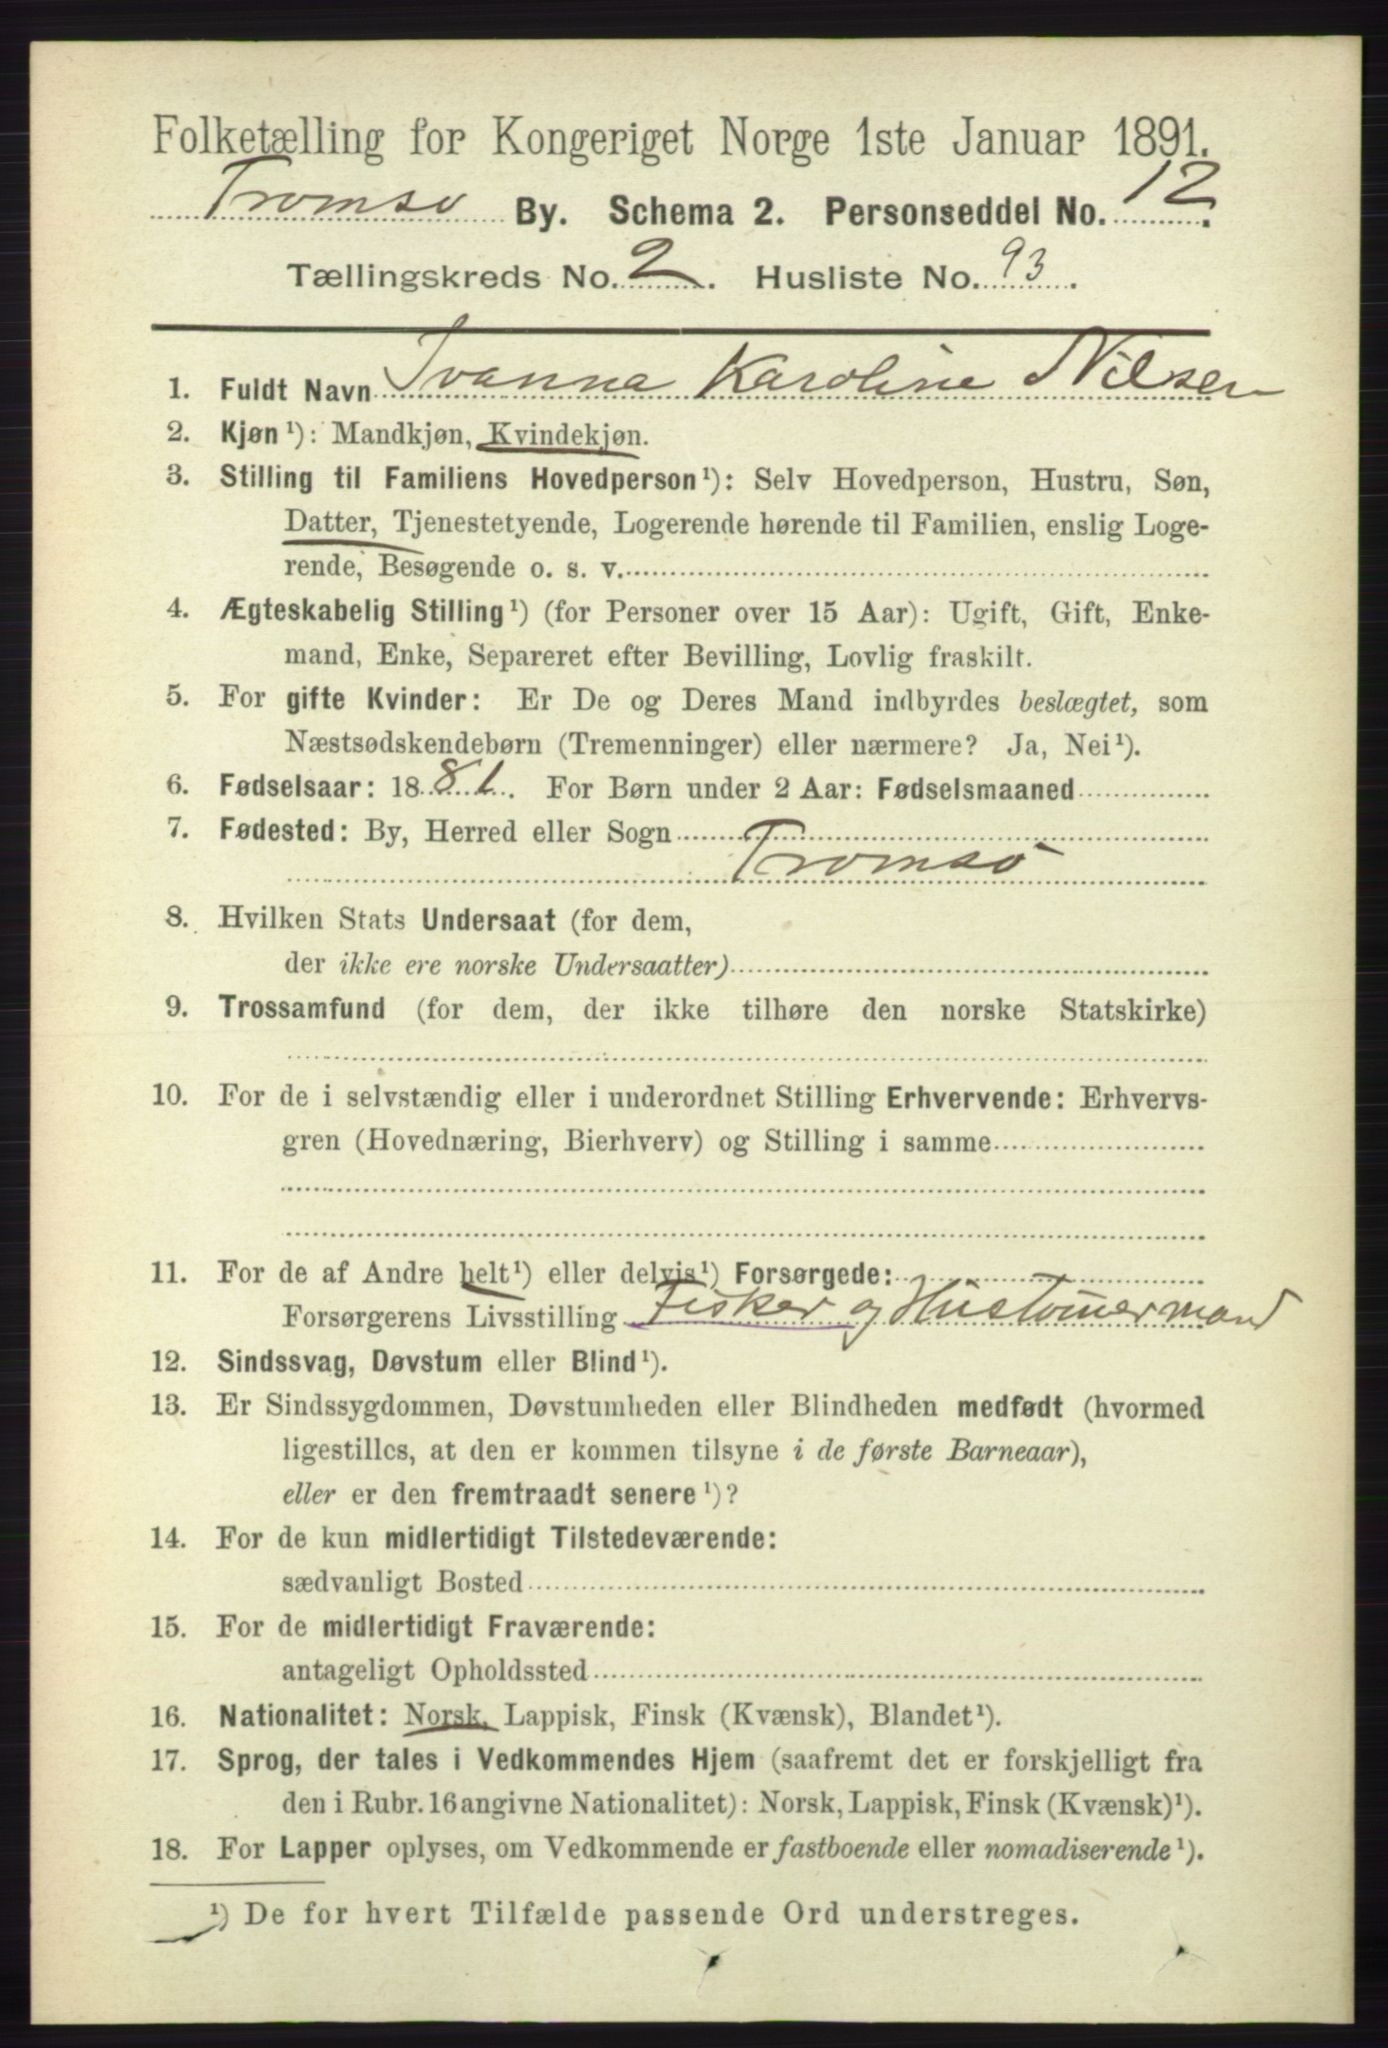 Folketælling for Kongeriget Norge 1ste Januar 1891.
Tromsø By. Schema 2. Personseddel No. 12.
Tællingskreds No. 2. Husliste No. 93.
1. Fuldt Navn Ivanna Karoline Nilsen
2. Kjøn¹): Mandkjøn, Kvindekjøn.
3. Stilling til Familiens Hovedperson¹): Selv Hovedperson, Hustru, Søn,
Datter, Tjenestetyende, Logerende hørende til Familien, enslig Loge-
rende, Besøgende o. s. v.
4. Ægteskabelig Stilling¹) (for Personer over 15 Aar): Ugift, Gift, Enke-
mand, Enke, Separeret efter Bevilling, Lovlig fraskilt.
5. For gifte Kvinder: Er De og Deres Mand indbyrdes beslægtet, som
Næstsødskendebørn (Tremenninger) eller nærmere? Ja, Nei¹).
6. Fødselsaar: 1881. For Børn under 2 Aar: Fødselsmaaned
7. Fødested: By, Herred eller Sogn
Tromsø
8. Hvilken Stats Undersaat (for dem,
der ikke ere norske Undersaatter)
9. Trossamfund (for dem, der ikke tilhøre den norske Statskirke)
10. For de i selvstændig eller i underordnet Stilling Erhvervende: Erhvervs-
gren (Hovednæring, Bierhverv) og Stilling i samme
11. For de af Andre helt¹) eller delvis¹) Forsørgede:
Forsørgerens Livsstilling Fisker og Hustømermand
12. Sindssvag, Døvstum eller Blind¹).
13. Er Sindssygdommen, Døvstumheden eller Blindheden medfødt (hvormed
ligestilles, at den er kommen tilsyne i de første Barneaar),
eller er den fremtraadt senere¹)?
14. For de kun midlertidigt Tilstedeværende:
sædvanligt Bosted
15. For de midlertidigt Fraværende:
antageligt Opholdssted
16. Nationalitet: Norsk, Lappisk, Finsk (Kvænsk), Blandet¹).
17. Sprog, der tales i Vedkommendes Hjem (saafremt det er forskjelligt fra
den i Rubr. 16 angivne Nationalitet): Norsk, Lappisk, Finsk (Kvænsk)¹).
18. For Lapper oplyses, om Vedkommende er fastboende eller nomadiserende¹).
¹) De for hvert Tilfælde passende Ord understreges.